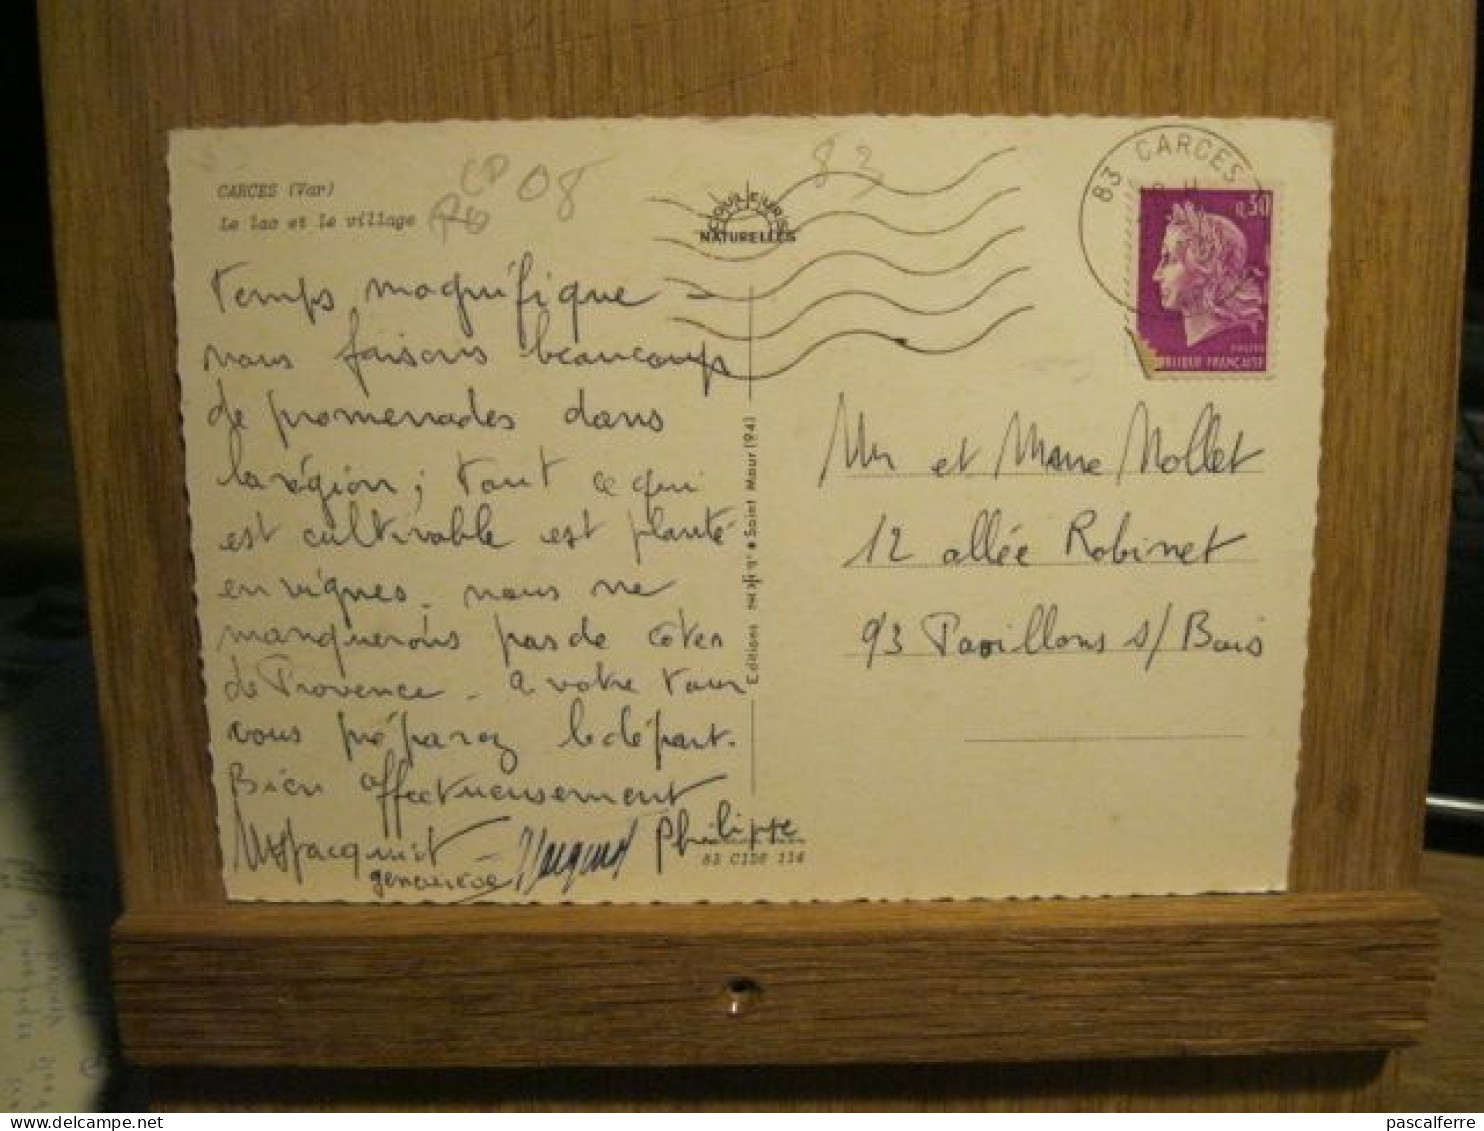 CARCES (Var)
Le lac et le village
CP 08
83
COULEURS
NATURELLES
83 CARCES
0,30
REPUBLIQUE FRANÇAISE
Temps magnifique -
nous faisons beaucoup
de promenades dans
la région ; tout ce qui
est cultivable est planté
en vignes. nous ne
manquerons pas de côtes
de Provence. a votre tour
vous préparez le départ.
Bien affectueusement
Jacquot
geneviève
Philippe
83 C156 114
Editions Saint Maur (94)
Mr et Mme Mollet
12 allée Robinet
93 Pavillons s/ Bois
pascalferre